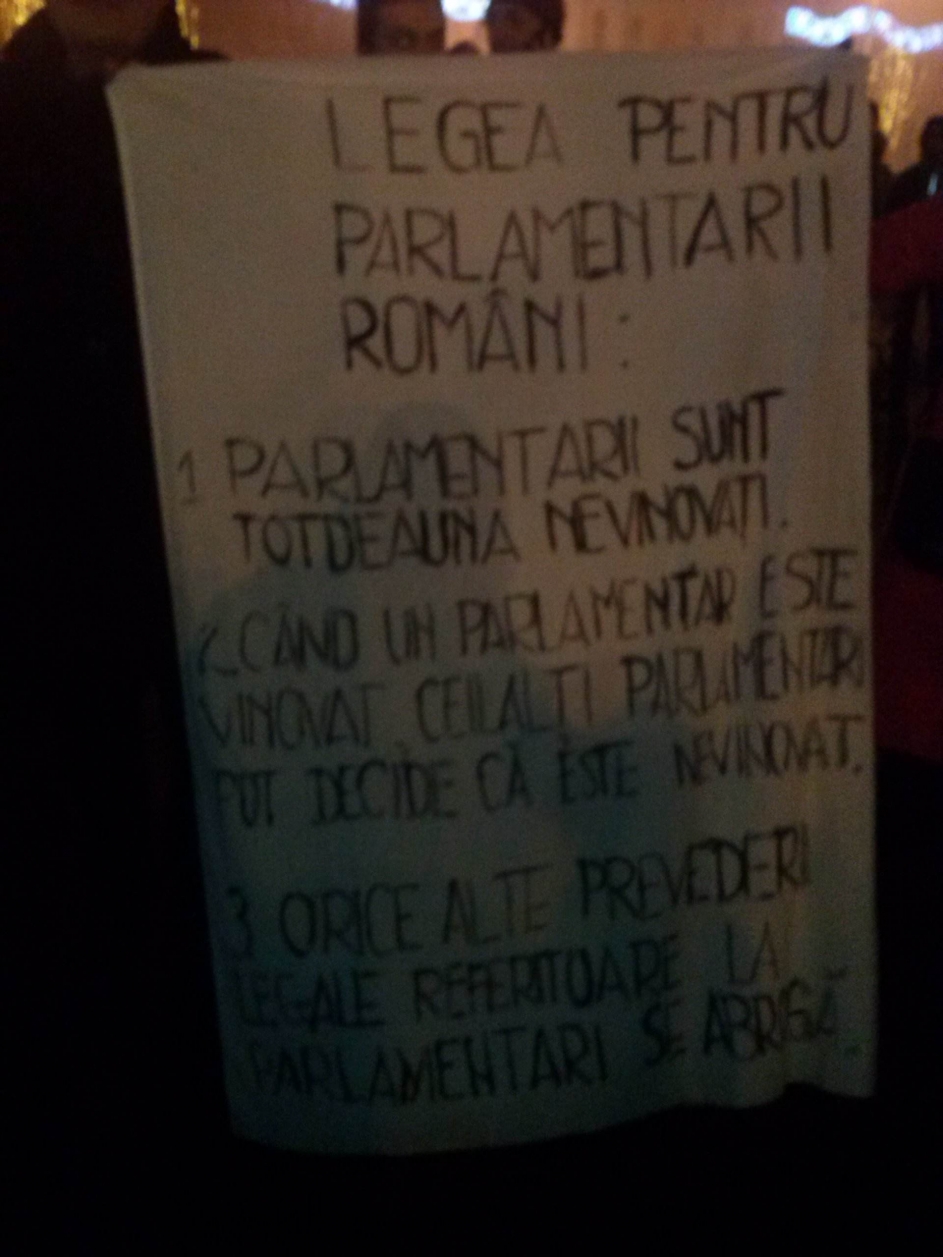 LEGEA PENTRU
PARLAMENTARII
ROMÂNI:
1 PARLAMENTARII SUNT
TOTDEAUNA NEVINOVAȚI.
2. CÂND UN PARLAMENTAR ESTE
VINOVAT CEILALȚI PARLAMENTARI
POT DECIDE CĂ ESTE NEVINOVAT.
3 ORICE ALTE PREVEDERI
LEGALE REFERITOARE LA
PARLAMENTARI SE ABRIGĂ